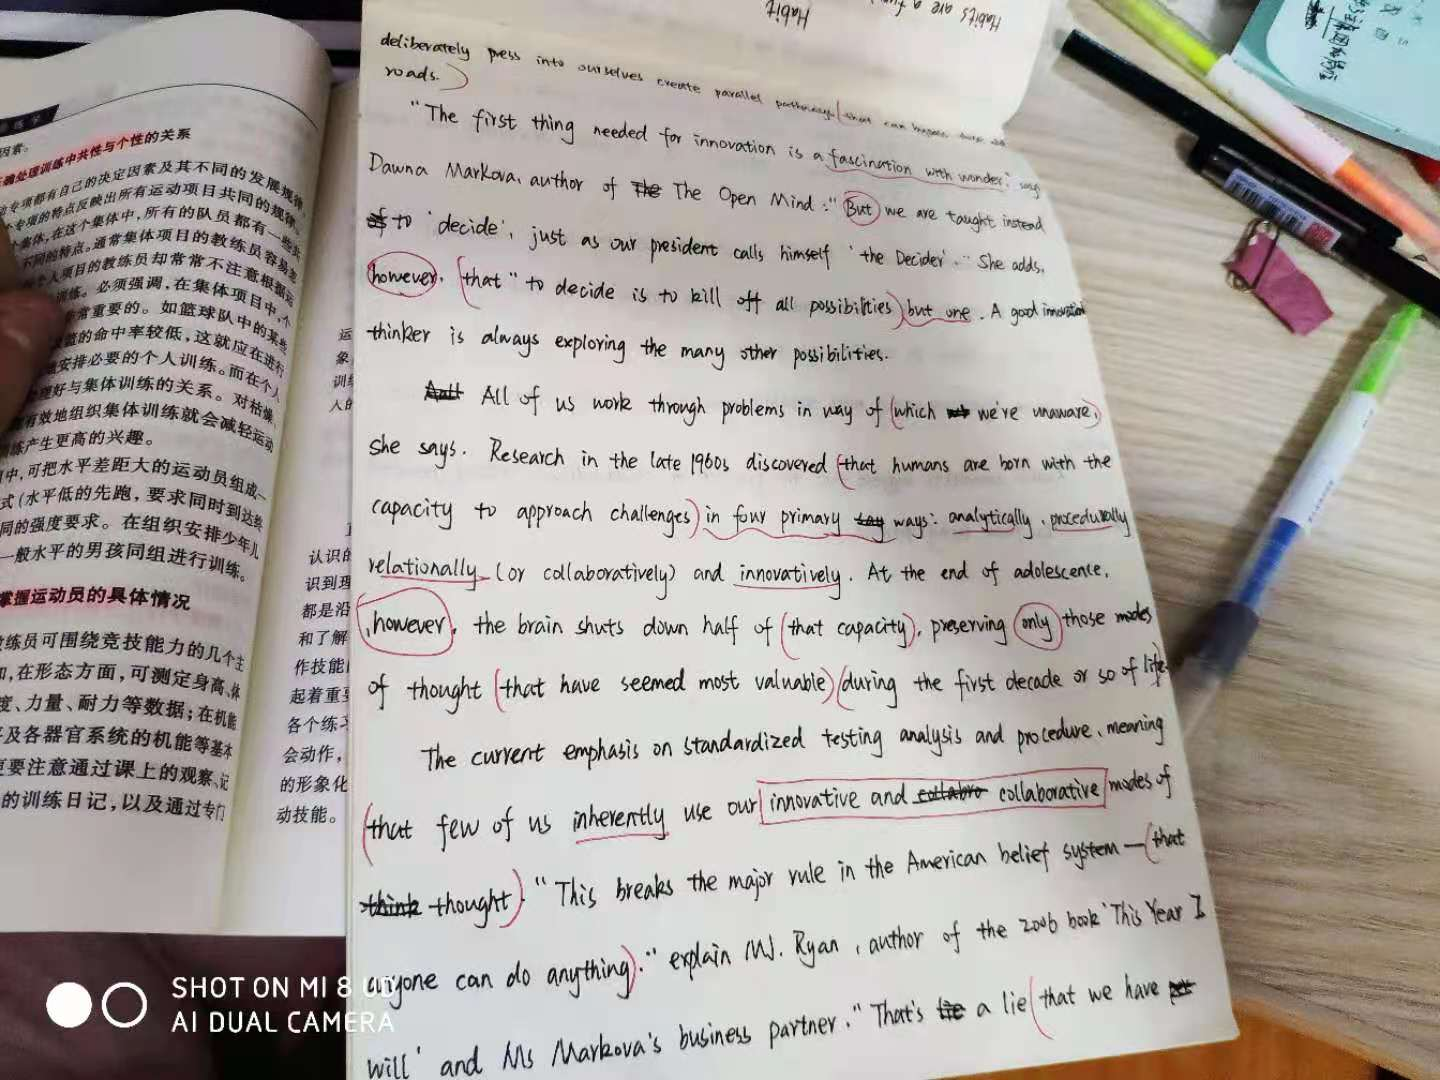 Habits are a fun
Habit
deliberately press into ourselves create parallel pathways (that can bypass
roads.)
"The first thing needed for innovation is a fascination with wonder", says
Dawna Markova, author of The The Open Mind:" But we are taught instead
of to 'decide', just as our president calls himself 'the Decider'." She adds,
however, (that "to decide is to kill off all possibilities) but one. A good innovation
thinker is always exploring the many other possibilities.
All of us work through problems in way of (which we're unaware,)
she says. Research in the late 1960s discovered (that humans are born with the
capacity to approach challenges) in four primary ways: analytically, procedurally
relationally (or collaboratively) and innovatively. At the end of adolescence,
, however, the brain shuts down half of (that capacity), preserving only those modes
of thought (that have seemed most valuable) (during the first decade or so of life
The current emphasis on standardized testing analysis and procedure, meaning
(that few of us inherently use our innovative and collabra collaborative modes of
think thought). "This breaks the major rule in the American belief system — (that
anyone can do anything)." explain M.J. Ryan, author of the 2006 book 'This Year I
will' and Ms Markova's business partner. "That's lie a lie (that we have
正确处理训练中共性与个性的关系
专项都有自己的决定因素及其不同的发展规律,
个专项的特点反映出所有运动项目共同的规律。
个集体,在这个集体中,所有的队员都有一些共
不同的特点。通常集体项目的教练员容易忽
个人项目的教练员却常常不注意根据运
训练。必须强调,在集体项目中,个
非常重要的。如篮球队中的某些
篮的命中率较低,这就应在进行
安排必要的个人训练。而在个人
处理好与集体训练的关系。对枯燥
有效地组织集体训练就会减轻运动
练产生更高的兴趣。
中,可把水平差距大的运动员组成一
式(水平低的先跑,要求同时到达终
同的强度要求。在组织安排少年儿
一般水平的男孩同组进行训练。
掌握运动员的具体情况
教练员可围绕竞技能力的几个主
如,在形态方面,可测定身高、体
度、力量、耐力等数据;在机能
及各器官系统的机能等基本
更要注意通过课上的观察、记
的训练日记,以及通过专门
运
象
训练
人的
认识的
识到理
都是沿
和了解
作技能
起着重要
各个练习
会动作,
的形象化
动技能。
SHOT ON MI 8 UD
AI DUAL CAMERA